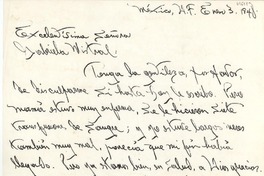 México, D.F. Enero 3. 1948
Excelentísima Señora
Gabriela Mistral.
Tenga la gentileza, por favor,
de disculparme si hasta hoy le escribo. Pero
mamá estuvo muy enferma, se le hicieron siete
transfusiones de sangre; y yo estuve pasgos meses
también muy mal, parecía que mi fin había
llegado. Pero ya estamos bien, en salud, a Dios gracias.